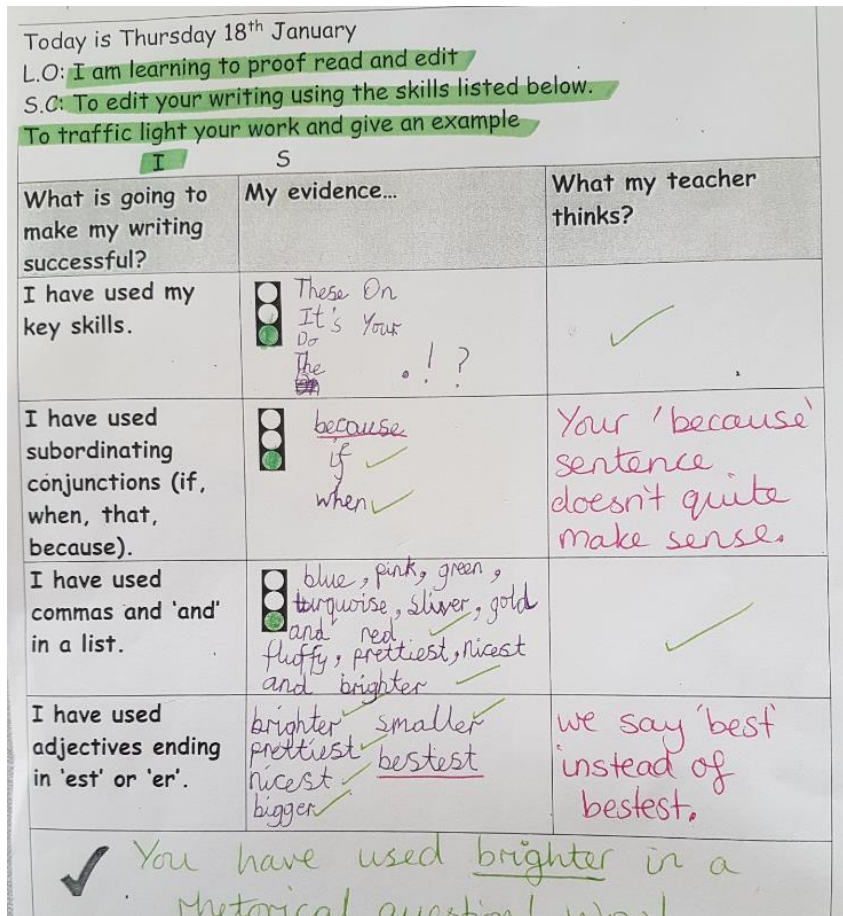 Today is Thursday 18th January
L.O: I am learning to proof read and edit
S.C: To edit your writing using the skills listed below.
To traffic light your work and give an example
I S
What is going to
make my writing
successful?
My evidence...
What my teacher
thinks?
I have used my
key skills.
These On
It's Your
Do
The
. ! ?
I have used
subordinating
conjunctions (if,
when, that,
because).
because
if
when
Your 'because'
sentence
doesn't quite
make sense.
I have used
commas and 'and'
in a list.
blue, pink, green,
turquoise, sliver, gold
and red
fluffy, prettiest, nicest
and brighter
I have used
adjectives ending
in 'est' or 'er'.
brighter smaller
prettiest bestest
nicest
bigger
we say 'best'
instead of
bestest.
You have used brighter in a
rhetorical question!